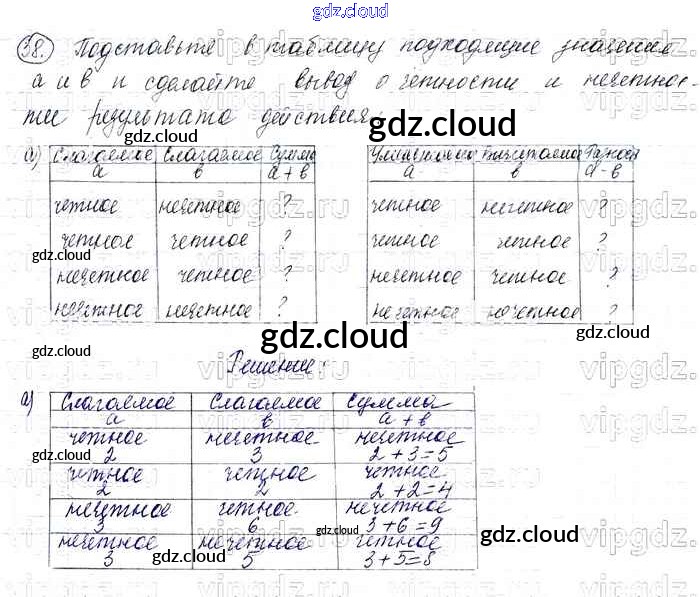 gdz.cloud
38. Подставьте в таблицу подходящие значения
а и в и сделайте вывод о четности и нечетнос-
ти результата действия.
gdz.cloud
gdz.cloud
а) Слагаемое Слагаемое Сумма
а в а + в
четное нечетное ?
четное четное ?
нечетное четное ?
нечетное нечетное ?
Уменьшаемое Вычитаемое Разность
а в а - в
четное нечетное ?
четное четное ?
нечетное четное ?
нечетное нечетное ?
gdz.cloud
gdz.cloud
gdz.cloud
Решение:
а) Слагаемое Слагаемое Сумма
а в а + в
четное нечетное нечетное
2 3 2 + 3 = 5
четное четное четное
2 2 2 + 2 = 4
нечетное четное нечетное
3 6 3 + 6 = 9
нечетное нечетное четное
3 5 3 + 5 = 8
gdz.cloud
gdz.cloud
gdz.cloud
gdz.cloud
gdz.cloud